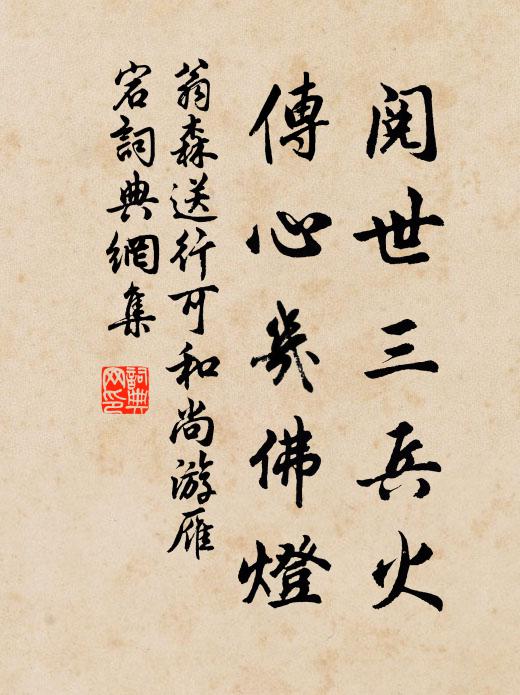 閱世三兵火
傳心幾佛燈
翁森送行可和尚游雁
宕詞典網集
詞典網印